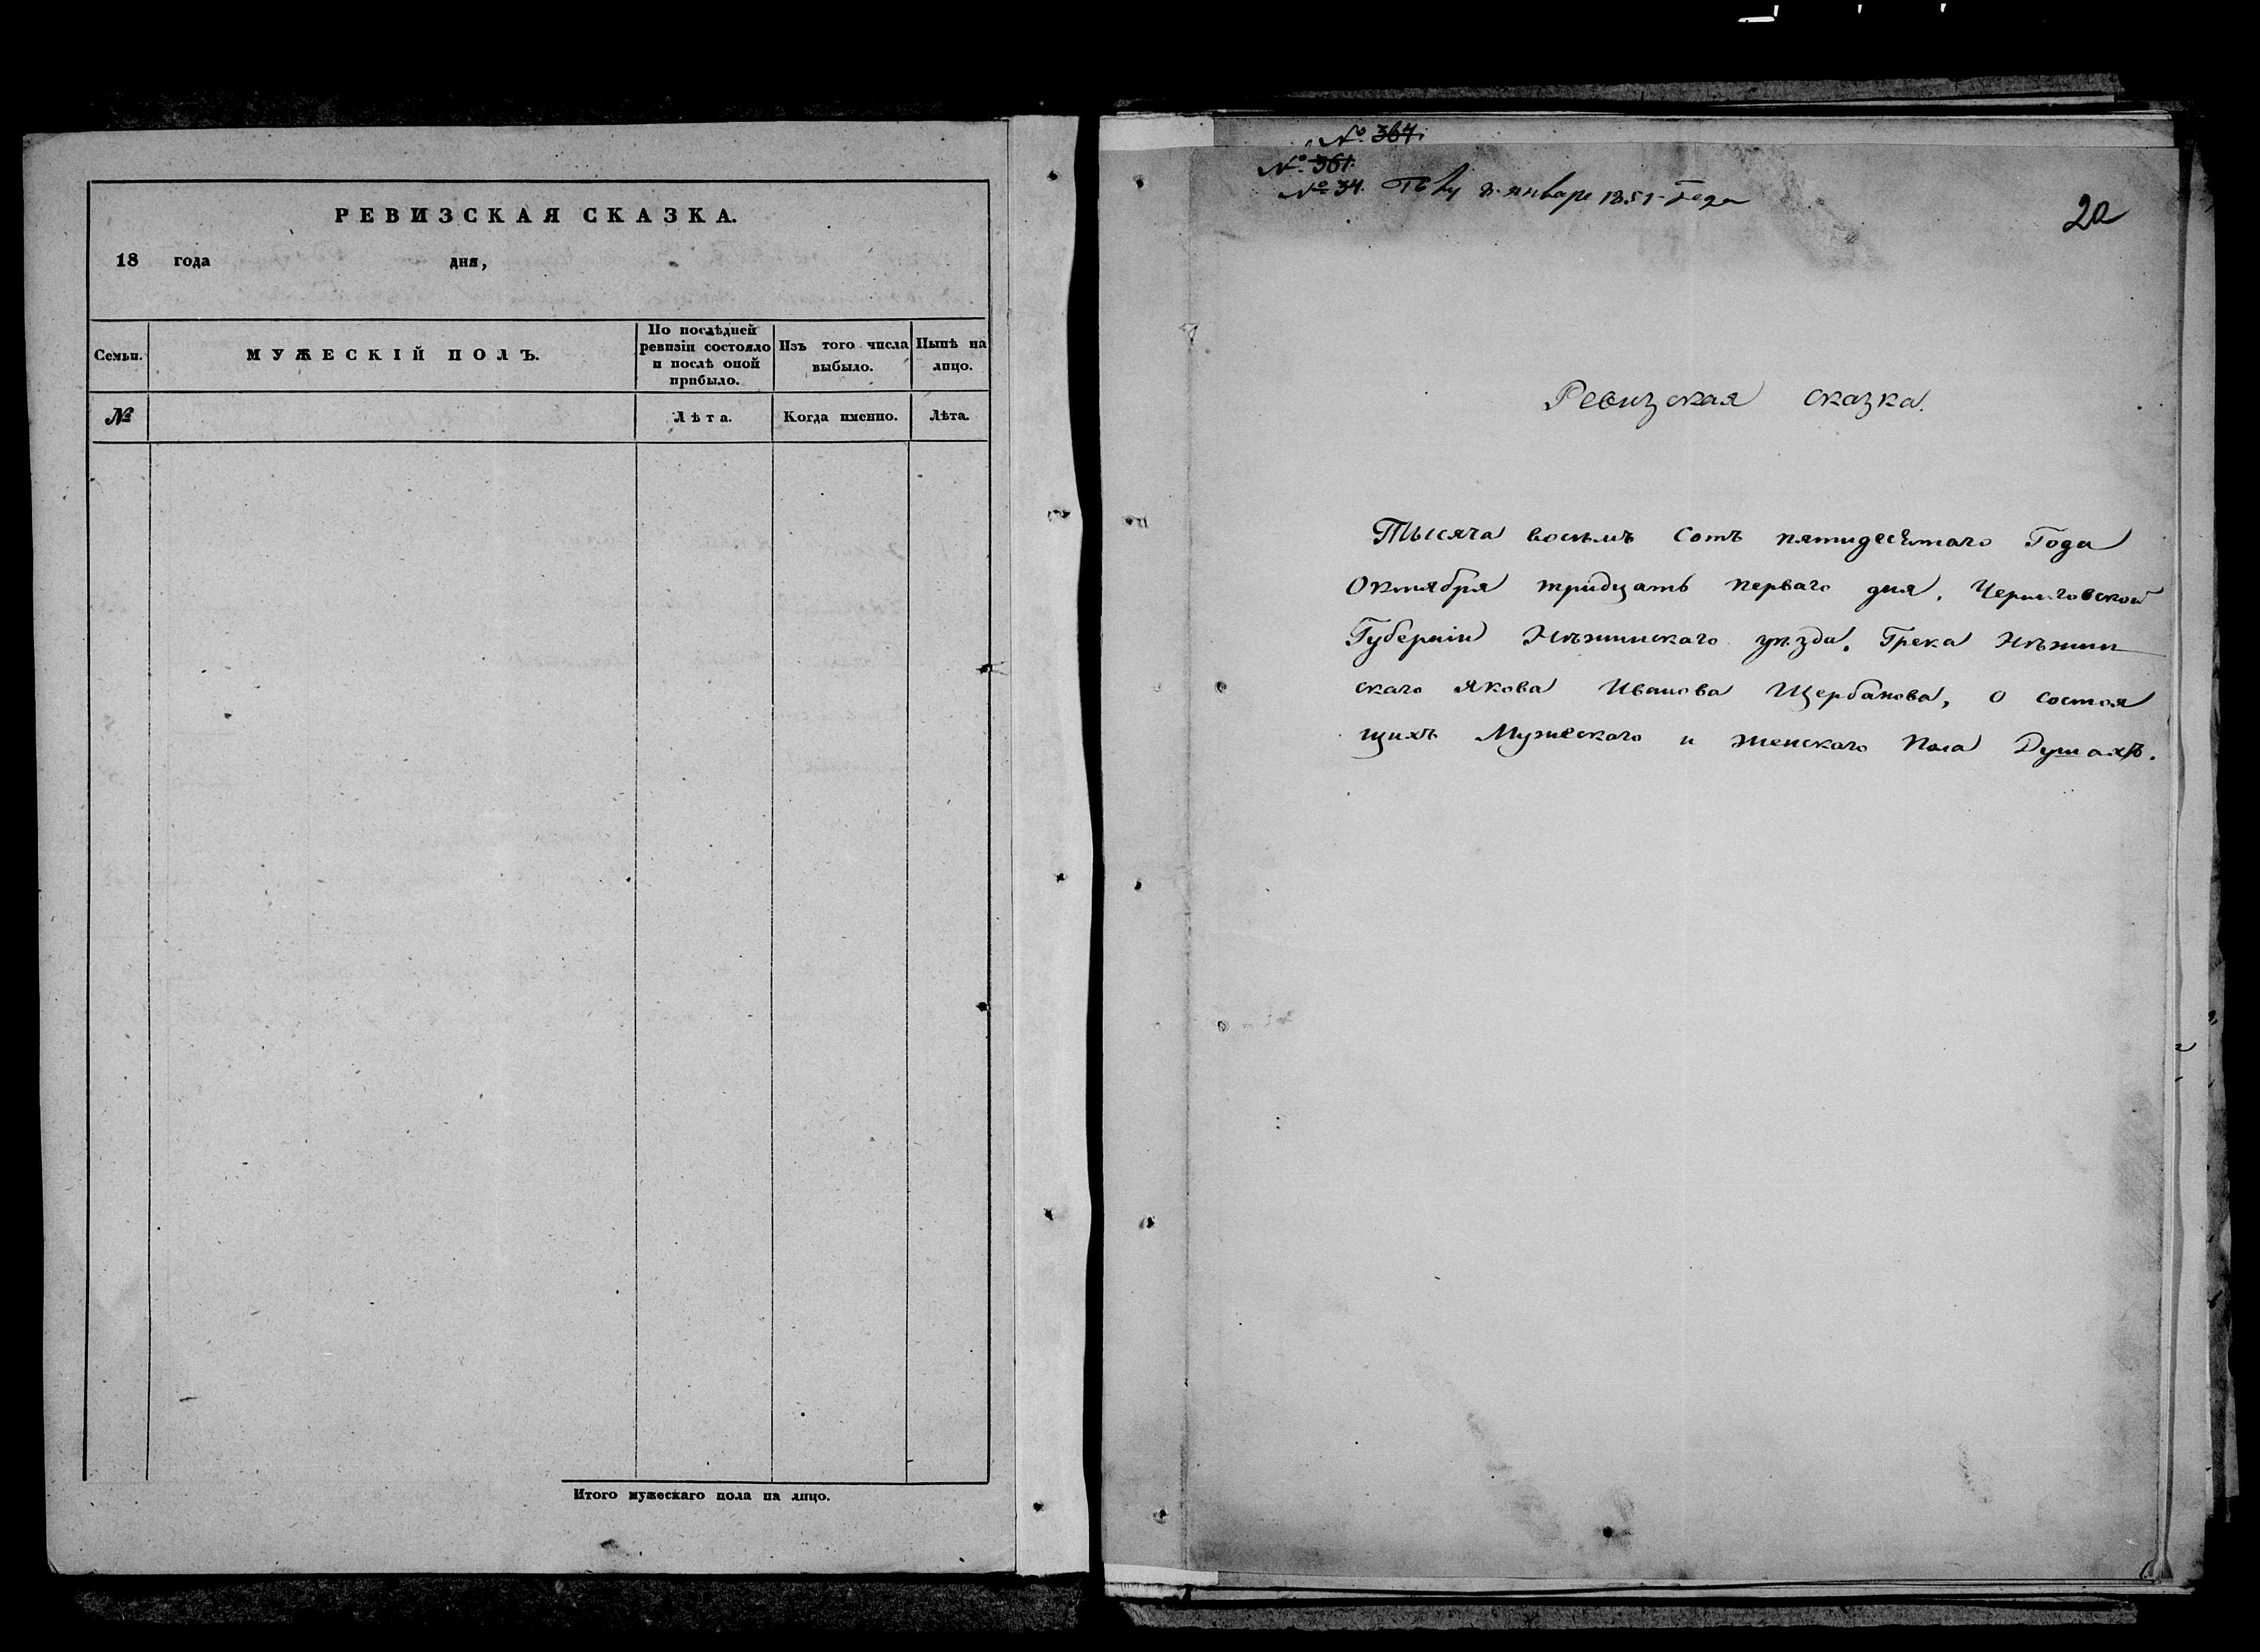 РЕВИЗСКАЯ СКАЗКА.
18 года дня,
Семьи.
МУЖЕСКІЙ ПОЛЪ.
По послѣдней
ревизіи состояло
и послѣ оной
прибыло.
Изъ того числа
выбыло.
Нынѣ на
лицо.
№
Лѣта.
Когда именно.
Лѣта.
Итого мужескаго пола на лицо.
№ 364.
№ 361.
№ 34. 8. январе 1851 Года
20
Ревизская сказка.
Тысяча восемь сотъ пятидесятаго Года
Октября тридцать перваго дня. Черниговской
Губерніи Нѣжинскаго уѣзда. Грека Нѣжин
скаго Якова Иванова Щербанова, о состоя
щихъ Мужескаго и женскаго пола Душахъ.